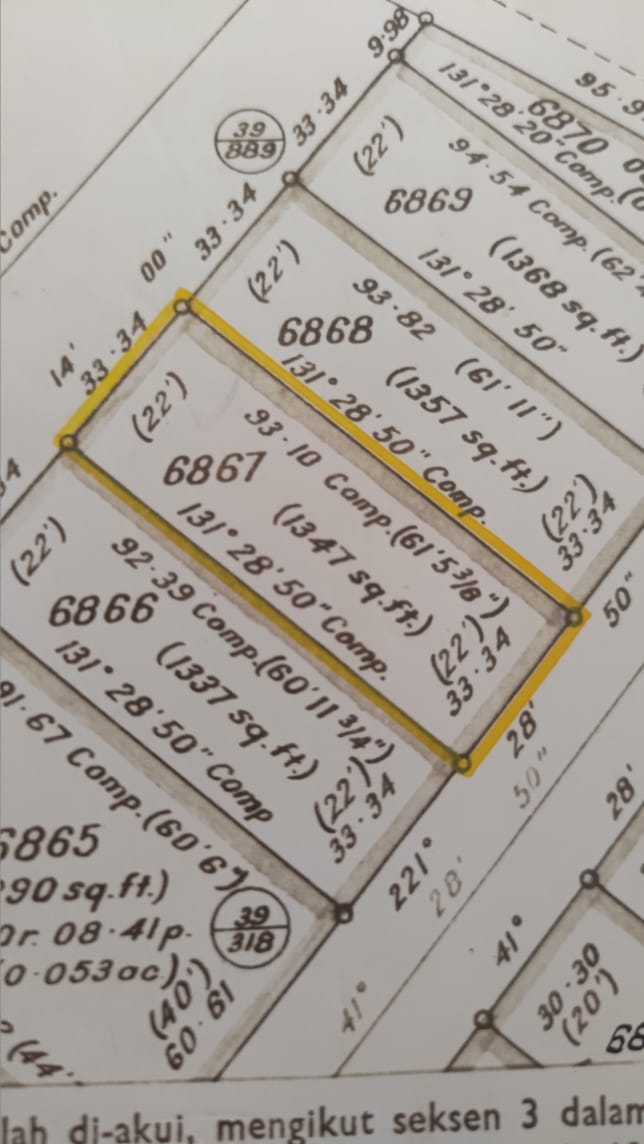 9·98
95·9
131° 28' 20" Comp.
6870
39
889
33·34
(22')
94·54 Comp. (62'
6869
(1368 sq.ft.)
131° 28' 50"
Comp.
33·34
00"
(22')
93·82 (61' 11")
6868
(1357 sq.ft.)
131° 28' 50" Comp.
(22')
33·34
14'
33·34
(22')
93·10 Comp.(61'5 3/8")
6867
(1347 sq.ft.)
131° 28' 50" Comp.
(22')
33·34
50"
28'
50"
34
(22')
92·39 Comp.(60'11 3/4")
6866
(1337 sq.ft.)
131° 28' 50" Comp
(22')
33·34
221°
28'
28'
91·67 Comp.(60'6")
6865
90 sq.ft.)
or. 08·41p.
0·053ac.)
39
318
(40')
60·61
(44'
41°
41°
30·30
(20')
68
lah di-akui, mengikut seksen 3 dalam